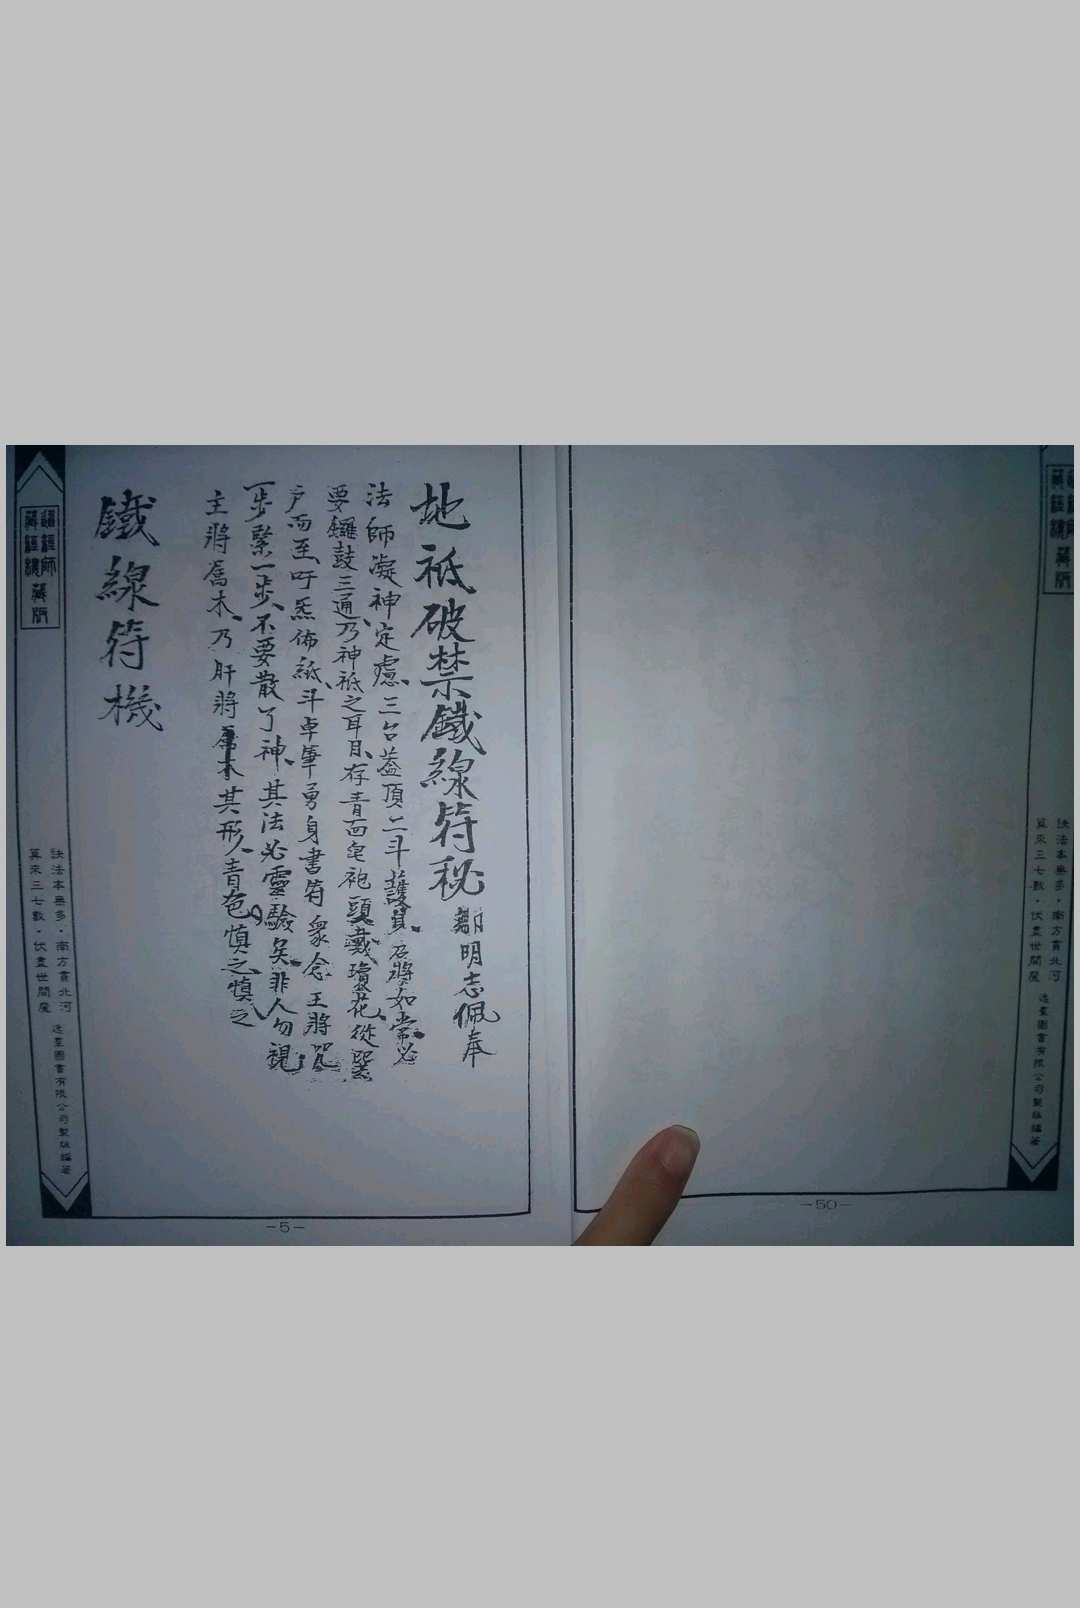 地祇破禁鐵線符秘 鄭明志佩奉
法師凝神定慮、三台蓋頂二斗護身、召將如常必
要鑼鼓三通乃神祇之耳目、存青面皂袍頭戴瓊花、從巽
户而至、吁炁佈紙、斗卓筆勇身書符衆念王將咒
一步緊一步、不要散了神、其法必靈驗矣、非人勿視
主將屬木、乃肝將屬木其形人青色慎之慎之
鐵線符機
藏經樓藏版
訣法本無多·南方貫北河
算來三七數·伏盡世間魔
逸羣圖書有限公司製版編著
-5-
藏經樓藏版
訣法本無多·南方貫北河
算來三七數·伏盡世間魔
逸羣圖書有限公司製版編著
-50-